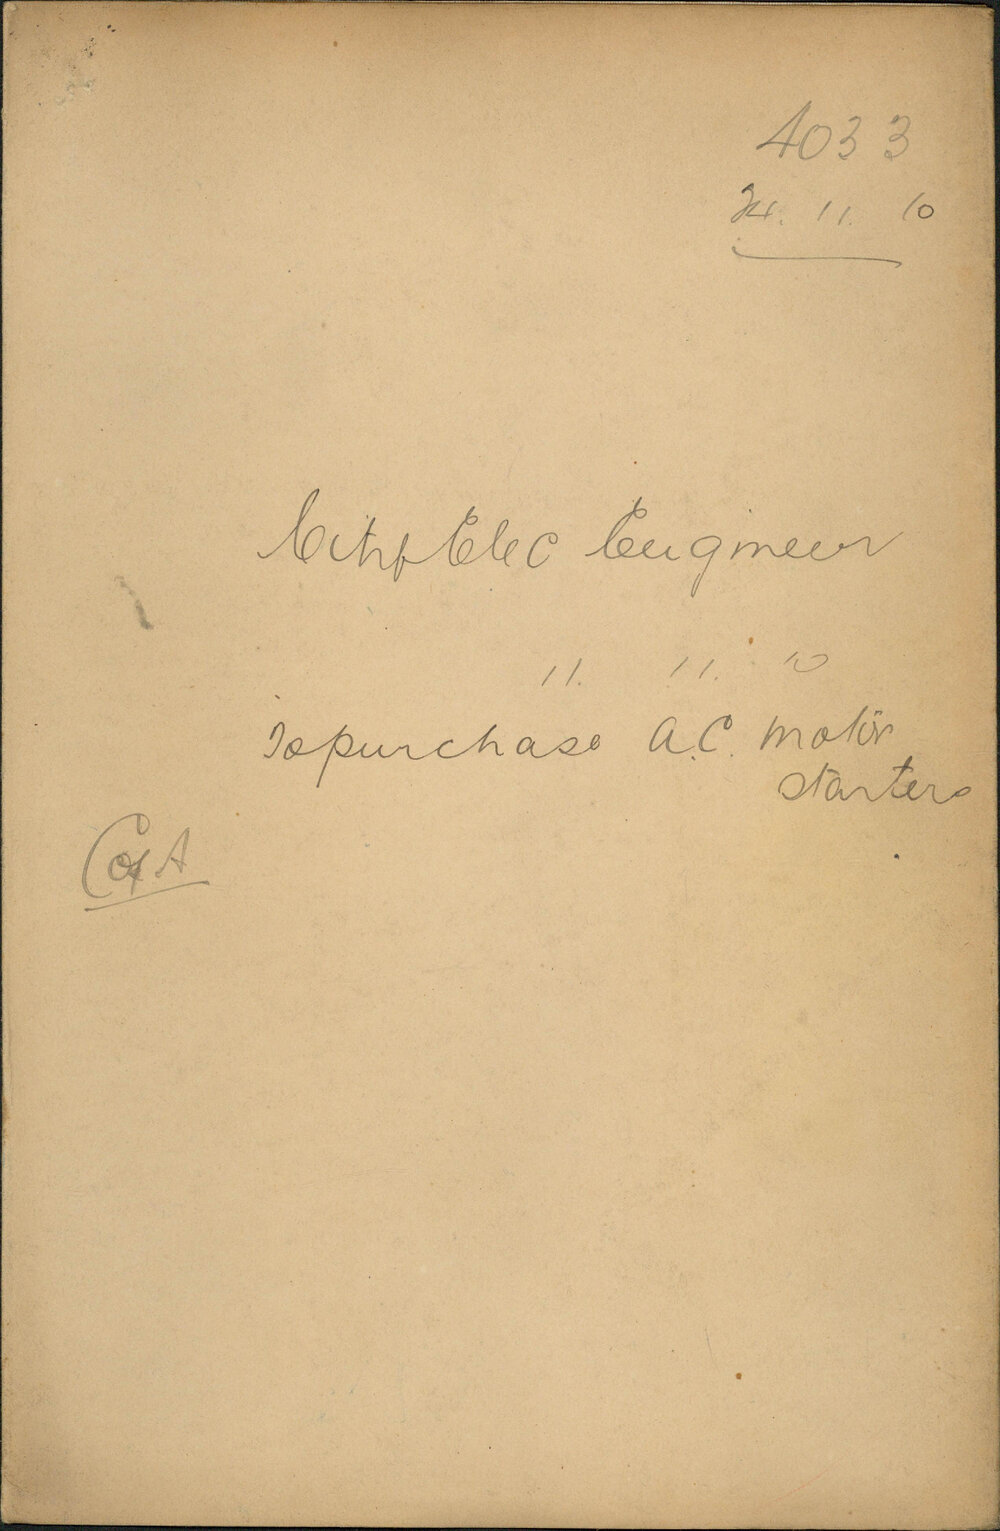 4033
24. 11. 10
City Elec Engineer
11. 11. 10
To purchase A.C. motor
starters
C of A